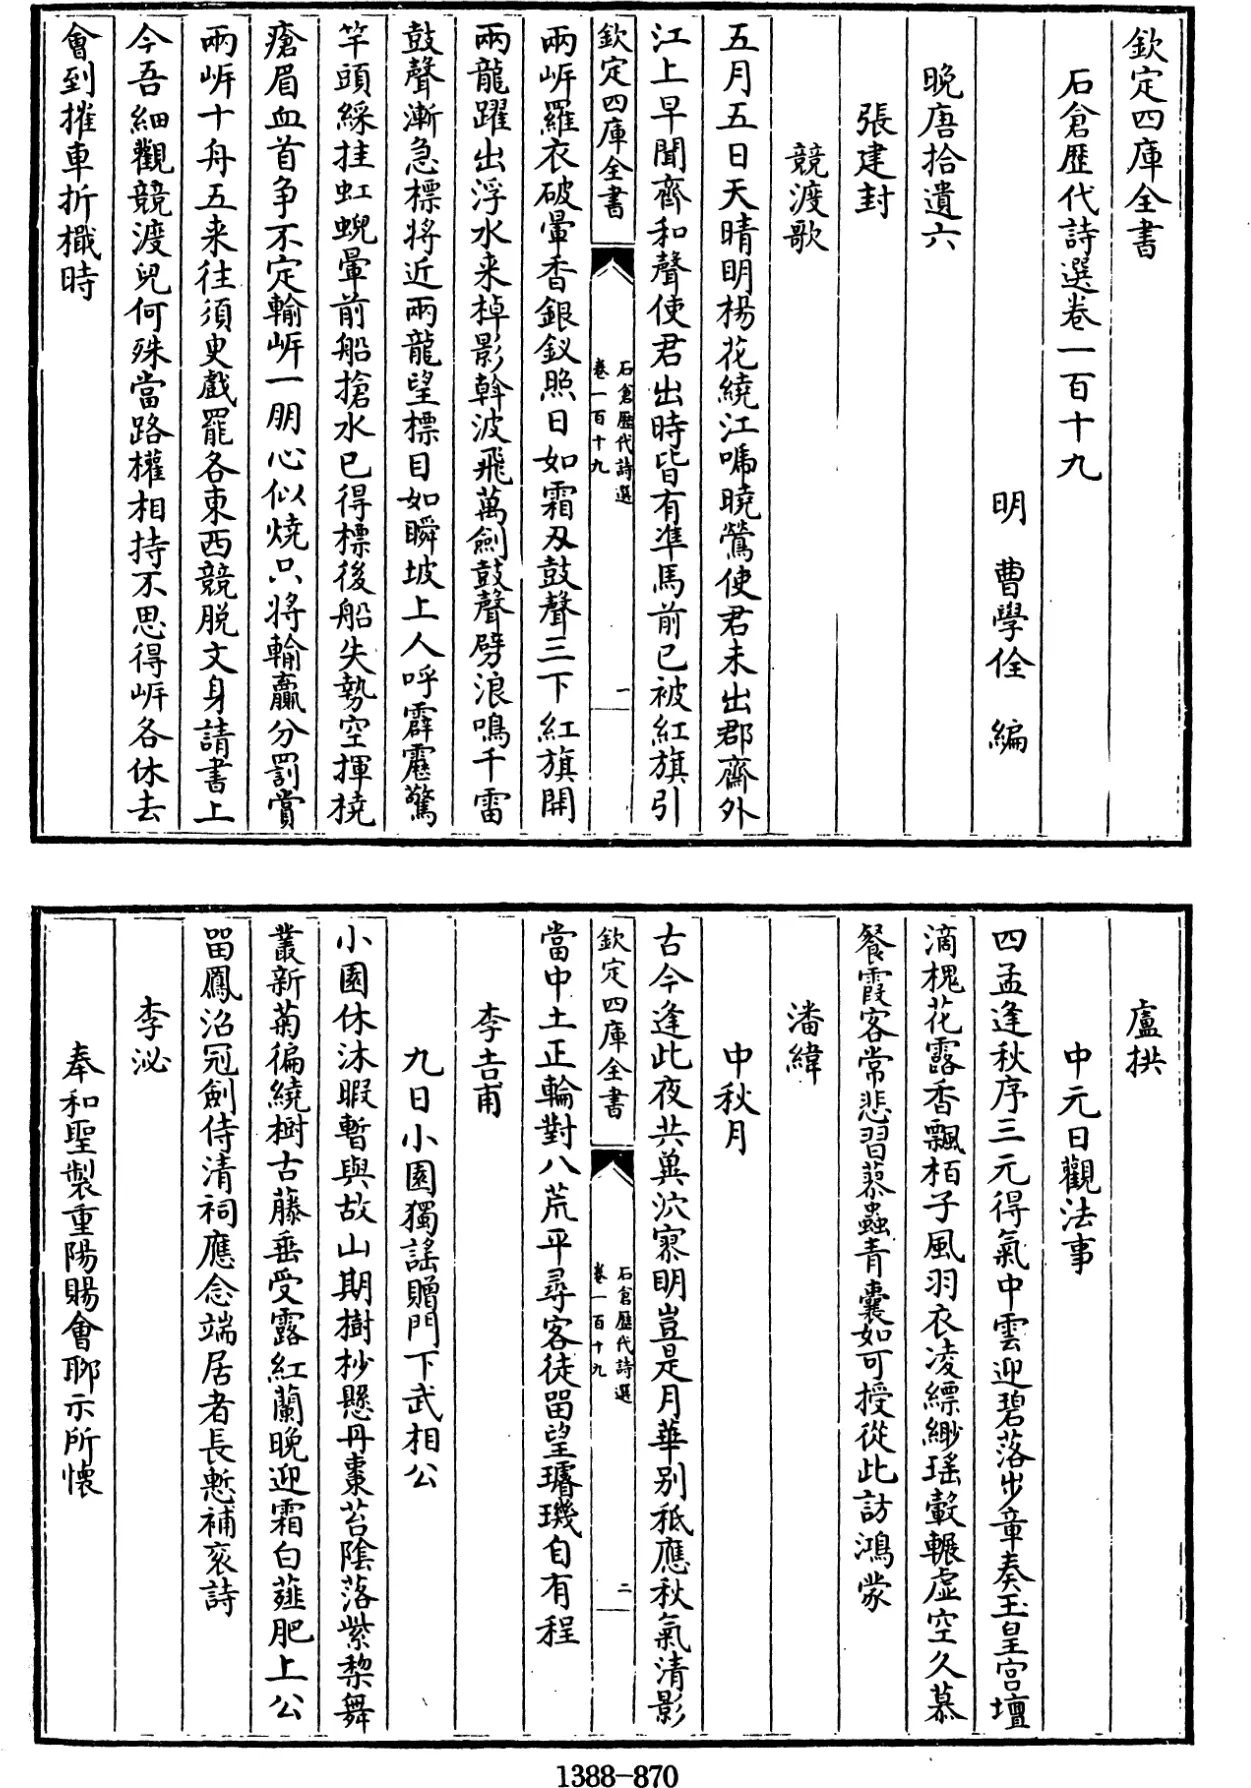 欽定四庫全書
石倉歷代詩選卷一百十九
明 曹學佺 編
晚唐拾遺六
張建封
競渡歌
五月五日天晴明楊花繞江啼曉鶯使君未出郡齋外
江上早聞齊和聲使君出時皆有準馬前已被紅旗引
欽定四庫全書
石倉歷代詩選
卷一百十九
一
兩岍羅衣破暈香銀釵照日如霜刃鼓聲三下紅旗開
兩龍躍出浮水来棹影斡波飛萬劍鼓聲劈浪鳴千雷
鼓聲漸急標將近兩龍望標目如瞬坡上人呼霹靂驚
竿頭綵挂虹蜺暈前船搶水已得標後船失勢空揮橈
瘡眉血首争不定輸岍一朋心似燒只將輸贏分罰賞
兩岍十舟五来往須臾戲罷各東西競脱文身請書上
今吾細觀競渡兒何殊當路權相持不思得岍各休去
會到摧車折檝時
盧拱
中元日觀法事
四孟逢秋序三元得氣中雲迎碧落步章奏玉皇宫壇
滴槐花露香飄栢子風羽衣凌縹緲瑤轂輾虛空久慕
餐霞客常悲習蓼蟲青囊如可授從此訪鴻蒙
潘緯
中秋月
古今逢此夜共冀泬寥明豈是月華别秪應秋氣清影
欽定四庫全書
石倉歷代詩選
卷一百十九
二
當中土正輪對八荒平尋客徒留望璿璣自有程
李吉甫
九日小園獨謡贈門下武相公
小園休沐暇暫與故山期樹杪懸丹棗苔陰落紫棃舞
叢新菊徧繞樹古藤垂受露紅蘭晚迎霜白薤肥上公
留鳳沼冠劍侍清祠應念端居者長慙補衮詩
李泌
奉和聖製重陽賜會聊示所懐
1388-870